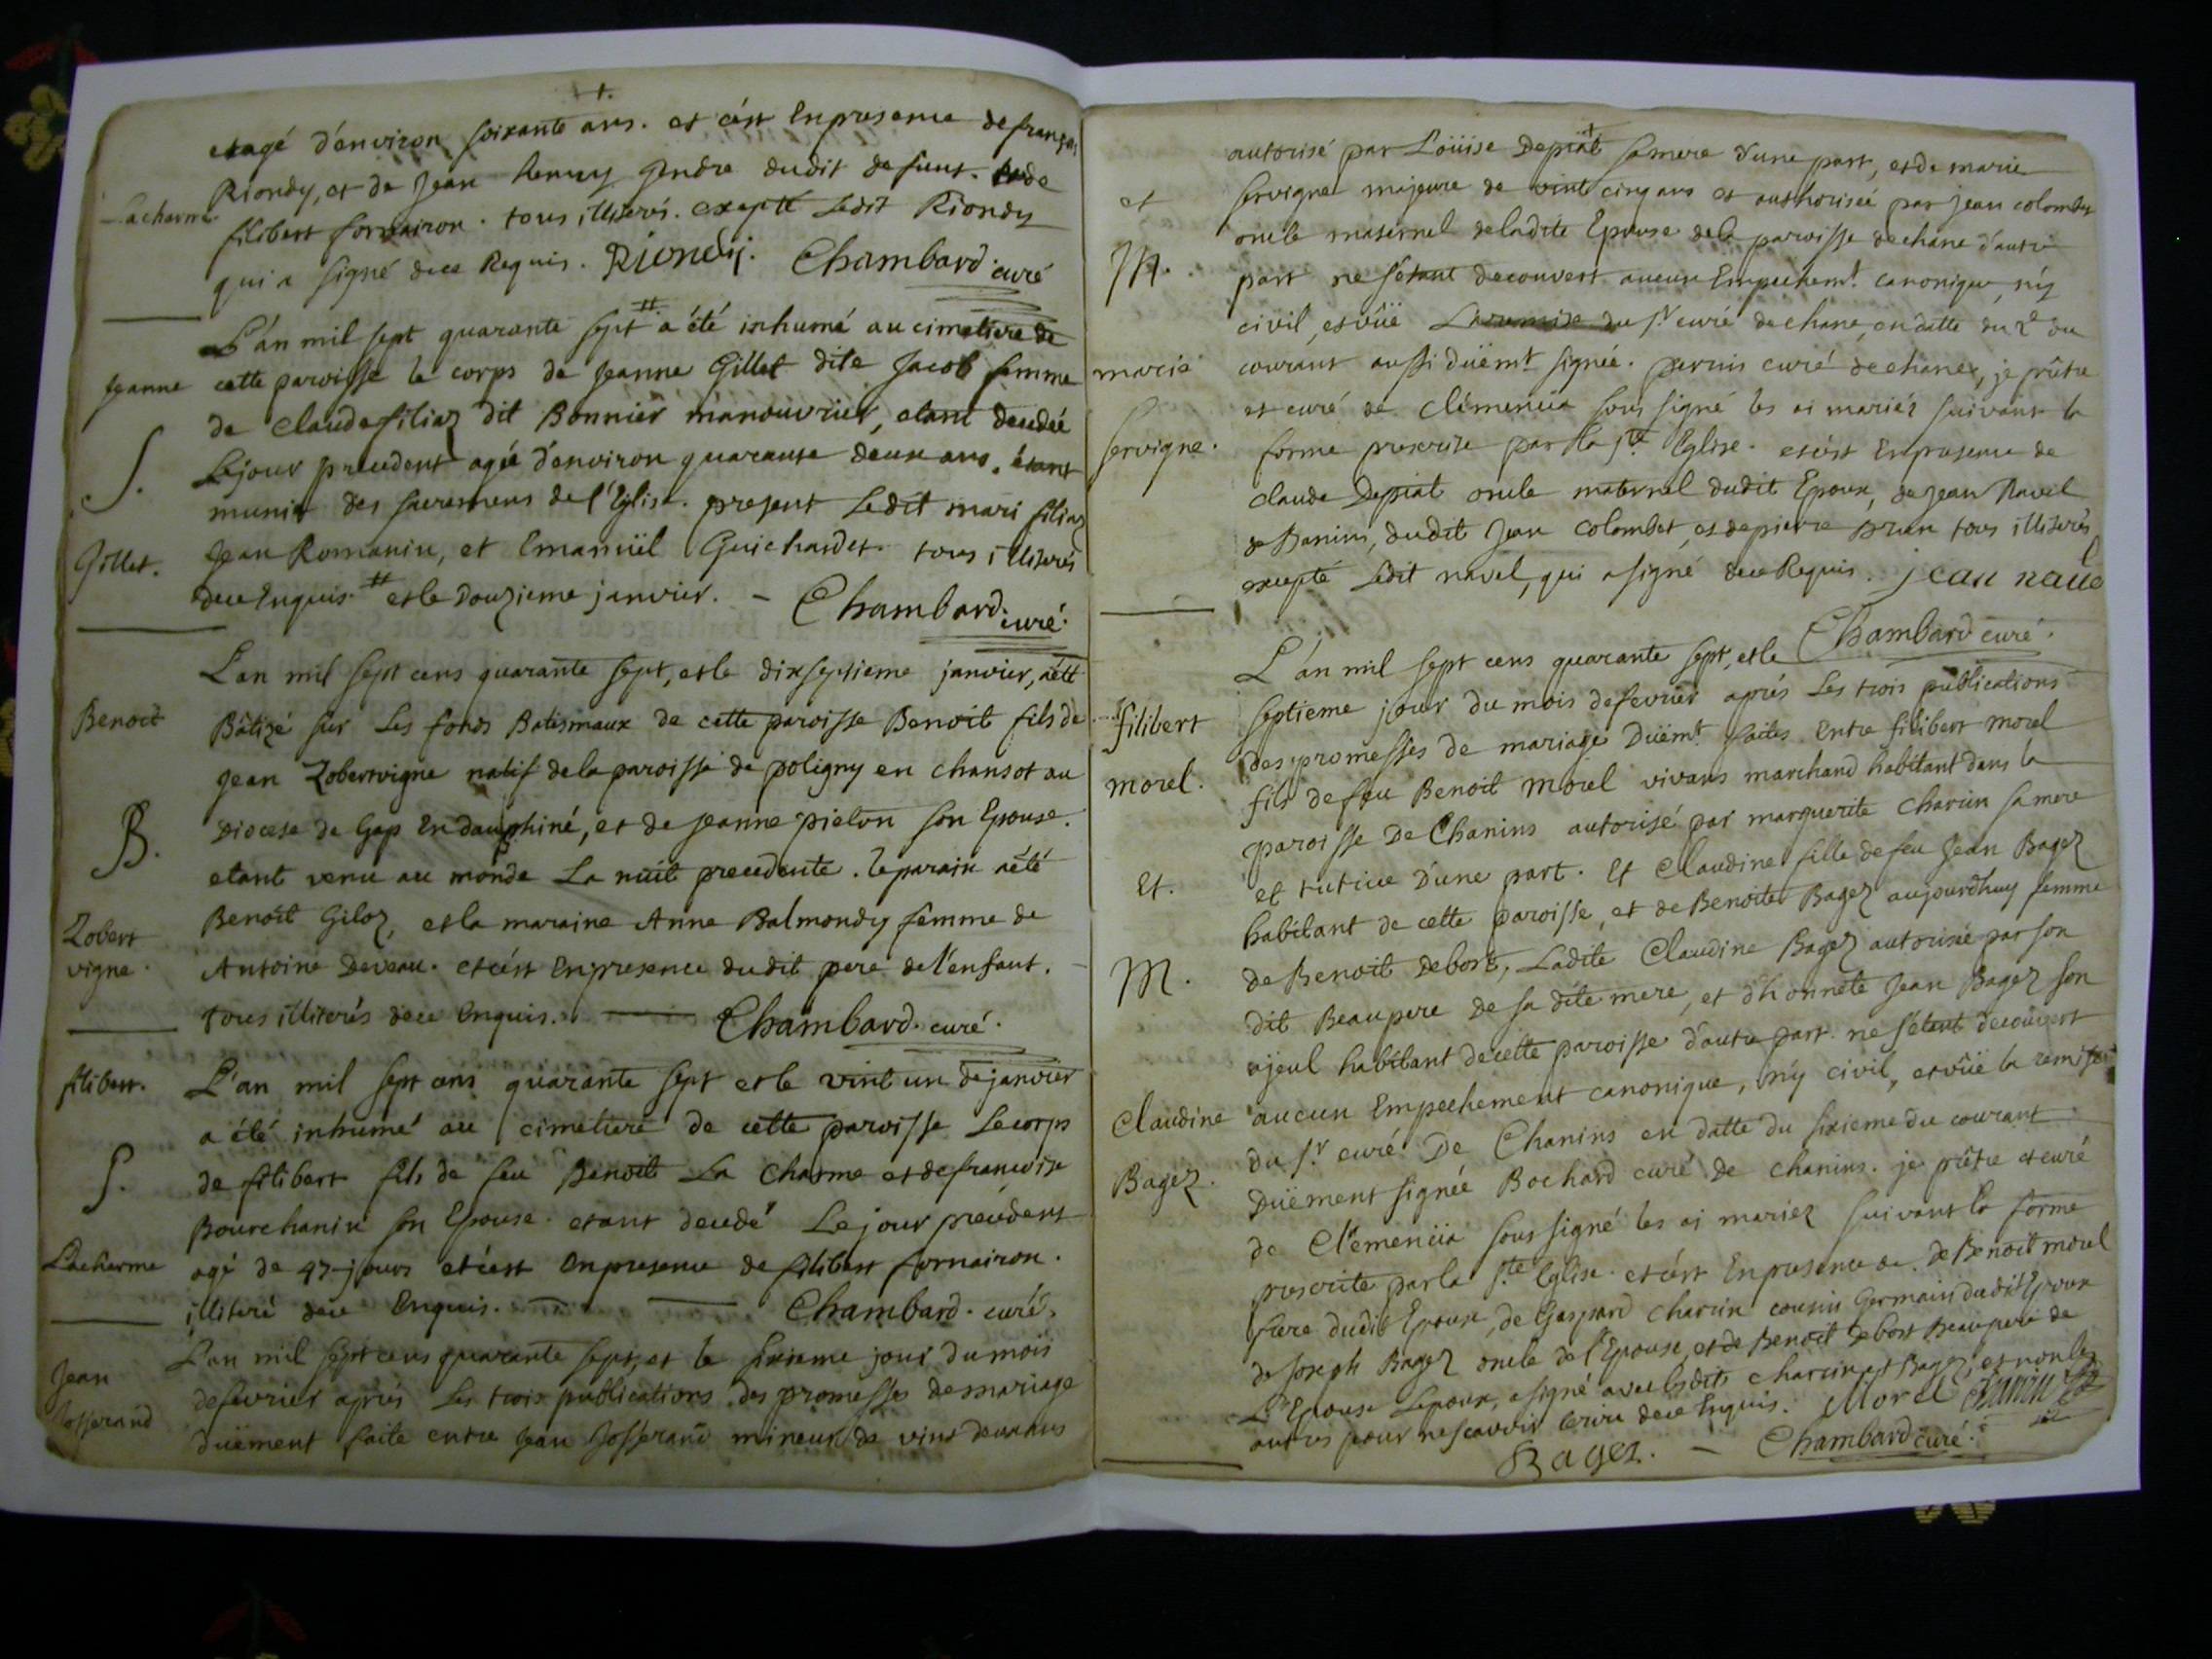 etagé d'environ soixante ans. et cést Enpresence de françois
Riondy, et de Jean henry Gendre dudit defunt. et de
Lacharme
filibert fornairon. tous illiterés. excepté Ledit Riondy
qui a signé dece Requis. Riondy. Chambard. curé
L'án mil sept quarante sept # a été inhumé au cimetiere de
Jeanne
cette paroisse le corps de Jeanne Gillet dite Jacob femme
de claude filiaz dit Bonnier manouvrier, etant decedeé
S.
Lejour precedent ageé d'environ quarante deux ans, étant
munie des sacremens de l'Eglise. present Ledit mari filiaz
Gillet.
Jean Romanin, et Emanuël Guichardet. tous illiterés
dece Enquis. # et le Douzieme janvier. - Chambard. curé.
L'an mil sept cens quarante sept, et le dixseptieme janvier, aété
Benoit
Bâtizé sur Les fonds Batismaux de cette paroisse Benoit fils de
Jean Robertvigne natif de la paroisse de poligny en chansot au
B.
Diocese de Gap En dauphiné, et de Jeanne pielon son Epouse.
etant venu au monde La nüit precedente. le parain aété
Robert
vigne.
Benoit Giloz, et la maraine Anne Balmondy femme de
Antoine Deveau. et cést Enpresence dudit pere de l'enfant.
tous illiterés dece Enquis. Chambard. curé.
filibert.
L'an mil sept cens quarante sept et le vint un de janvier
a été inhumé au cimetiere de cette paroisse Le corps
S.
de filibert fils de feu Benoit La Charme et de francoise
Bourchanin son Epouse. etant decedé Le jour precedent
Lacharme
agé de 47 jours et cést Enpresence de filibert fornairon.
illiteré dece Enquis. Chambard. curé.
Jean
Josserand
L'an mil sept cens quarante sept, et le sixieme jour du mois
de fevrier aprés Les trois publications des promesses de mariage
duëment faite entre Jean Josserand mineur de vint deux ans
autorisé par Loüise Depiat sa mere d'une part, et de marie
et
servigne majeure de vint cinq ans et authoriseé par Jean colombet
oncle maternel deladite Epouse dela paroisse de chane d'autre
M.
part ne s'étant decouvert aucun Empechem.t canonique, ny
civil, et vüe La remise du S.r curé de chane, en datte du 2.e du
marie
courant aussi düem.t signée. perrin curé de chane, je prêtre
et curé de Clémencia sous signé les ai mariez suivant la
servigne.
forme prescrite par la S.te Eglise. et cést Enpresence de
claude Depiat oncle maternel dudit Epoux, de Jean Navel
de Banins, dudit Jean Colombet, et de pierre Brun tous illiterés
excepté Ledit navel, qui a signé dece Requis. jean navel
Chambard curé.
L'án mil sept cens quarante sept, et le
filibert
septieme jour du mois de fevrier aprés Les trois publications
morel.
des promesses de mariage Düem.t faites Entre filibert morel
fils de feu Benoit Morel vivans marchand habitant dans la
paroisse De Chanins autorisé par marguerite charcin sa mere
Et.
et tutrice D'une part. Et Claudine fille de feu Jean Bagez
habitant de cette paroisse, et de Benoite Bagez aujourdhuy femme
M.
de Benoit Debost, Ladite Claudine Bagez autorisée par son
dit Beaupere de sa dite mere, et d'honnete Jean Bagez son
ajeul habitant de cette paroisse d'autre part. ne s'étant decouvert
Claudine
aucun Empechement canonique, ny civil, et vüe la remise
du S.r curé De Chanins en datte du sixieme du courant
Bagez.
Düement signée Bochard curé de chanins. je prêtre et curé
de Clémencia sous signé les ai mariez suivant la forme
prescrite par la S.te Eglise. et cést Enpresence de. de Benoit morel
frere dudit Epoux, de Gaspard charcin cousin Germain dudit Epoux
de Joseph Bagez oncle de l'Epouse, et de Benoit Debost Beaupere de
L'Epouse Lepoux, a signé avec lesdits charcin et Bagez, et non les
autres pour ne scavoir écrire dece Enquis. Morel
Bagez. - Chambard curé.